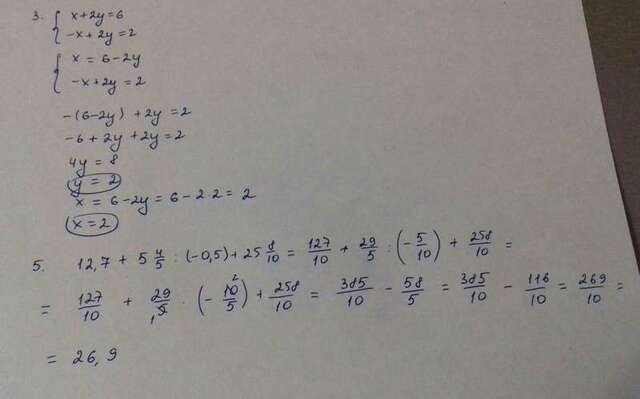 3. { x+2y=6
-x+2y=2
{ x = 6-2y
-x+2y=2
-(6-2y) +2y=2
-6+2y+2y=2
4y = 8
y = 2
x = 6-2y = 6-2 2 = 2
x=2
5. 12,7 + 5 4/5 : (-0,5) + 25 8/10 = 127/10 + 29/5 : (-5/10) + 258/10 =
= 127/10 + 29/5 · (-10/5) + 258/10 = 385/10 - 58/5 = 385/10 - 116/10 = 269/10 =
= 26,9